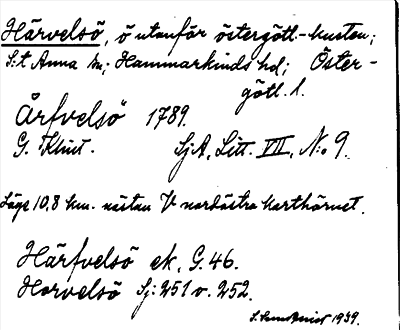 Härvelsö, ö utanför östergötl.-kusten;
S:t Anna sn; Hammarkinds hd; Öster-
götl. l.
Årfvelsö 1789.
G. Klint. SjA, Litt. VII, N:o 9.
Läge 10,8 km. nästan V nordöstra karthörnet.
Härfvelsö ek. G. 46.
Horvelsö Sj: 251 v. 252.
1939.